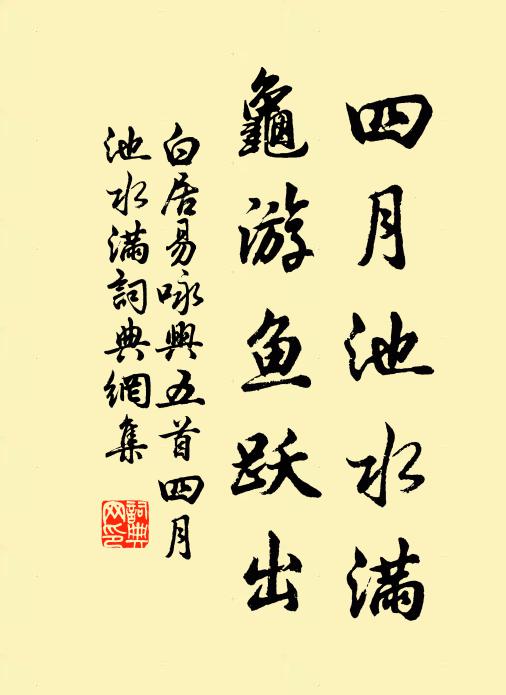 四月池水满
龜游鱼跃出
白居易咏興五首四月
池水满詞典網集
詞典
网印